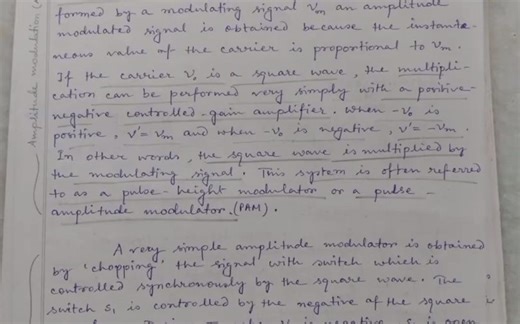 formed by a modulating signal vm an amplitude
modulated signal is obtained because the instanta-
neous value of the carrier is proportional to vm.
If the carrier vo is a square wave, the multipli-
cation can be performed very simply with a positive-
negative controlled-gain amplifier. when -vo is
positive, v'= vm and when -vo is negative, v'= -vm.
In other words, the square wave is multiplied by
the modulating signal. This system is often referred
to as a pulse-height modulator or a pulse-
amplitude modulator. (PAM).
A very simple amplitude modulator is obtained
by 'chopping' the signal with switch which is
controlled synchronously by the square wave. The
switch S1 is controlled by the negative of the square
is negative, S1 is open
Amplitude modulation